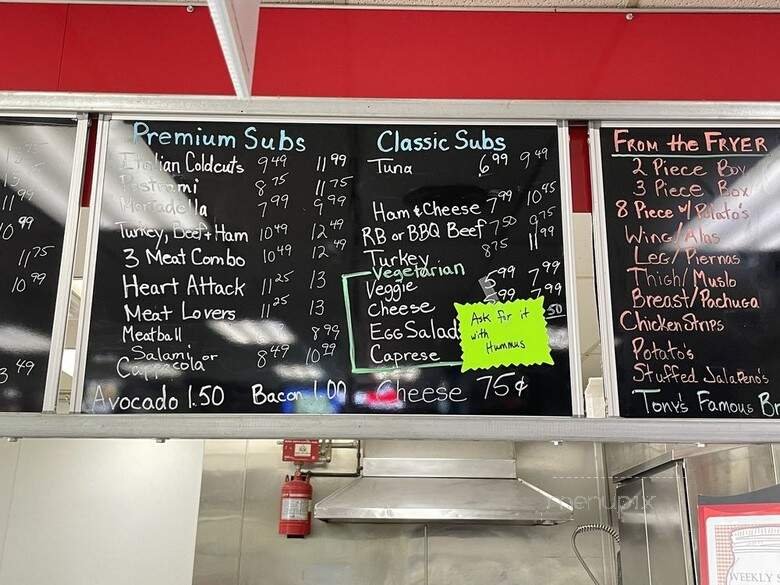 11 99
10 99
11 75
10 99
3 49
Premium Subs
Italian Coldcuts 9 49 11 99
Pastrami 8 75 11 75
Mortadella 7 99 9 99
Turkey, Beef + Ham 10 49 12 49
3 Meat Combo 10 49 12 49
Heart Attack 11 25 13
Meat Lovers 11 25 13
Meatball 8 99
Salami or 8 49 10 29
Cappacola
Avocado 1.50 Bacon 1.00 Cheese 75¢
Classic Subs
Tuna 6 99 9 49
Ham & Cheese 7 99 10 45
RB or BBQ Beef 7 50 9 75
Turkey 8 75 11 99
Vegetarian
Veggie 5 99 7 99
Cheese 5 99 7 99
Egg Salad 50
Caprese
Ask for it
with
Hummus
From the Fryer
2 Piece Box
3 Piece Box
8 Piece w/ Potato's
Wing/Alas
Leg/Piernas
Thigh/Muslo
Breast/Pachuga
Chicken Strips
Potato's
Stuffed Jalapeno's
Tony's Famous Br
menupix
WEEKLY